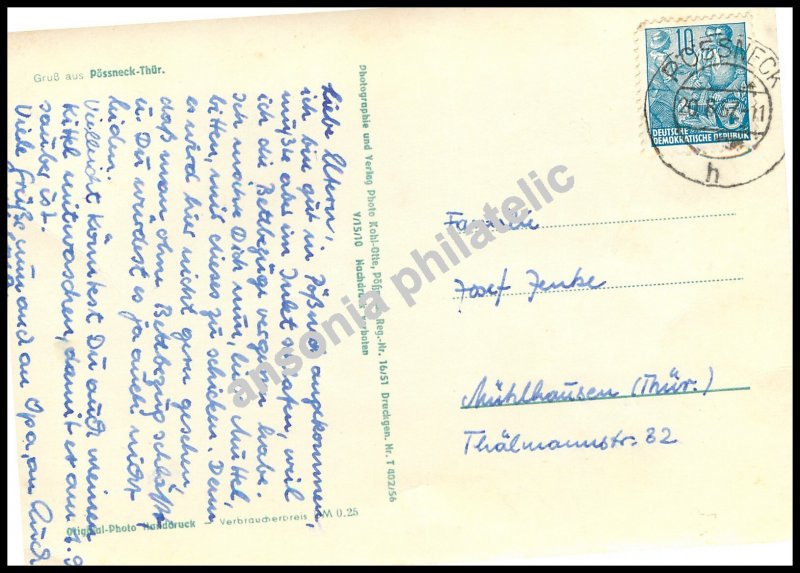 Gruß aus Pössneck-Thür.
Liebe Eltern,
ich bin gut in Pößneck angekommen,
müßte aber im Inlet schlafen, weil
ich die Bettbezüge vergessen habe.
Ich möchte Dich nun, liebe Mutter,
bitten, mir eines zu schicken. Denn
es wird hier nicht gern gesehen
daß man ohne Bettbezug schläft
u. Du würdest es ja auch nicht
leiden.
Vielleicht könntest Du auch meinen
Kittel mitwaschen, damit er am 1.9.
sauber ist.
Viele Grüße nun und an Opa, an
Original-Photo Handdruck – Verbraucherpreis DM 0.25
Photographie und Verlag Photo Kohl-Otte, Reg.-Nr. 16/51 Druckgen. Nr. T 402/56
V/15/10 Nachdruck verboten
10
DEUTSCHE
DEMOKRATISCHE REPUBLIK
PÖSSNECK
h
Familie
Josef Jenke
Mühlhausen (Thür.)
Thälmannstr. 32
ansonia philatelic